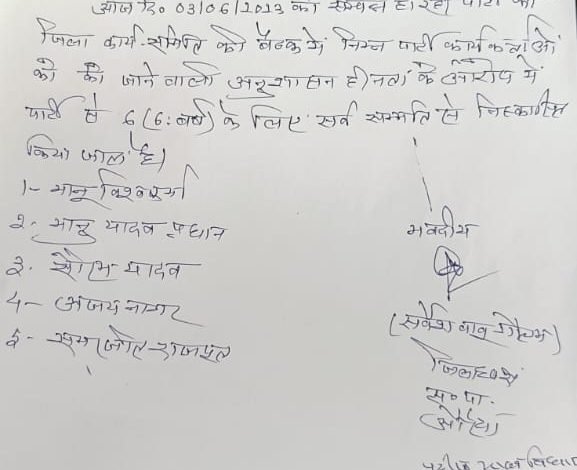 आज दि० 03/06/2023 को सम्पन्न हो रही पार्टी की
जिला कार्य समिति की बैठक में निम्न पार्टी कार्यकर्ताओं
को की जाने वाली अनुशासन हीनता के आरोप में
पार्टी से 6 (6: वर्ष) के लिए सर्व सम्मति से निष्कासित
किया जाता है।
1- भानू विश्वकर्मा
2- भानु यादव प्रधान
3. सौरभ यादव
4- अजय नागर
5- राजपूत
भवदीय
(सर्वेश बाबू गौतम)
जिलाध्यक्ष
स०पा०
औरैया